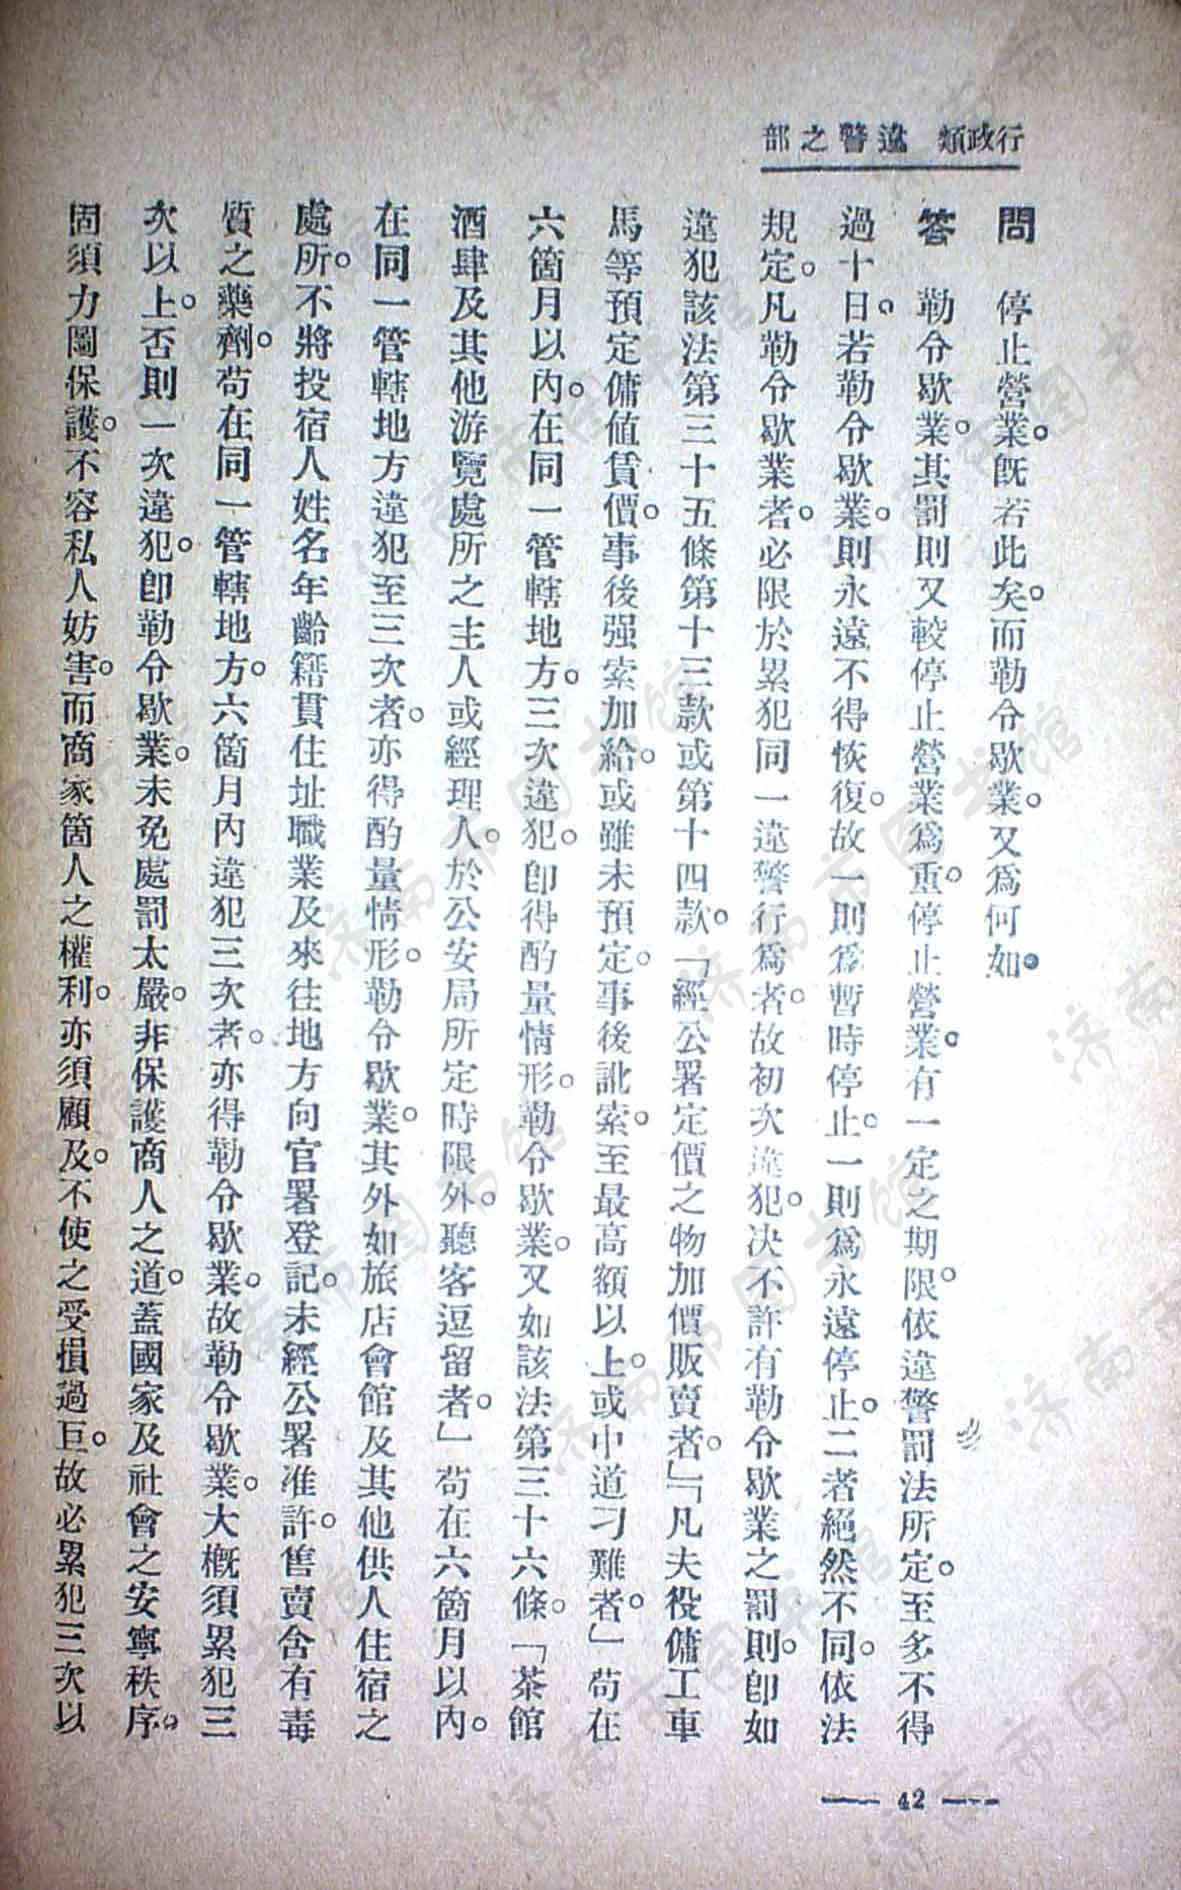 行政類 違警之部
問 停止營業。既若此矣。而勒令歇業。又爲何如。
答 勒令歇業。其罰則又較停止營業爲重。停止營業。有一定之期限。依違警罰法所定。至多不得
過十日。若勒令歇業。則永遠不得恢復。故一則爲暫時停止。一則爲永遠停止。二者絕然不同。依法
規定。凡勒令歇業者。必限於累犯同一違警行爲者。故初次違犯。决不許有勒令歇業之罰則。卽如
違犯該法第三十五條第十三款或第十四款。「經公署定價之物加價販賣者。」「凡夫役傭工車
馬等預定傭値賃價。事後强索加給。或雖未預定。事後訛索。至最高額以上。或中道刁難者。」苟在
六箇月以內。在同一管轄地方。三次違犯。卽得酌量情形。勒令歇業。又如該法第三十六條。「茶館
酒肆及其他游覽處所之主人或經理人。於公安局所定時限外。聽客逗留者。」苟在六箇月以內。
在同一管轄地方違犯至三次者。亦得酌量情形。勒令歇業。其外如旅店會館及其他供人住宿之
處所。不將投宿人姓名年齡籍貫住址職業及來往地方向官署登記。未經公署准許。售賣含有毒
質之藥劑。苟在同一管轄地方。六箇月內違犯三次者。亦得勒令歇業。故勒令歇業。大槪須累犯三
次以上。否則一次違犯。卽勒令歇業。未免處罰太嚴。非保護商人之道。蓋國家及社會之安寧秩序。
固須力圖保護。不容私人妨害。而商家箇人之權利。亦須顧及。不使之受損過巨。故必累犯三次以
— 42 —
济南市图书馆